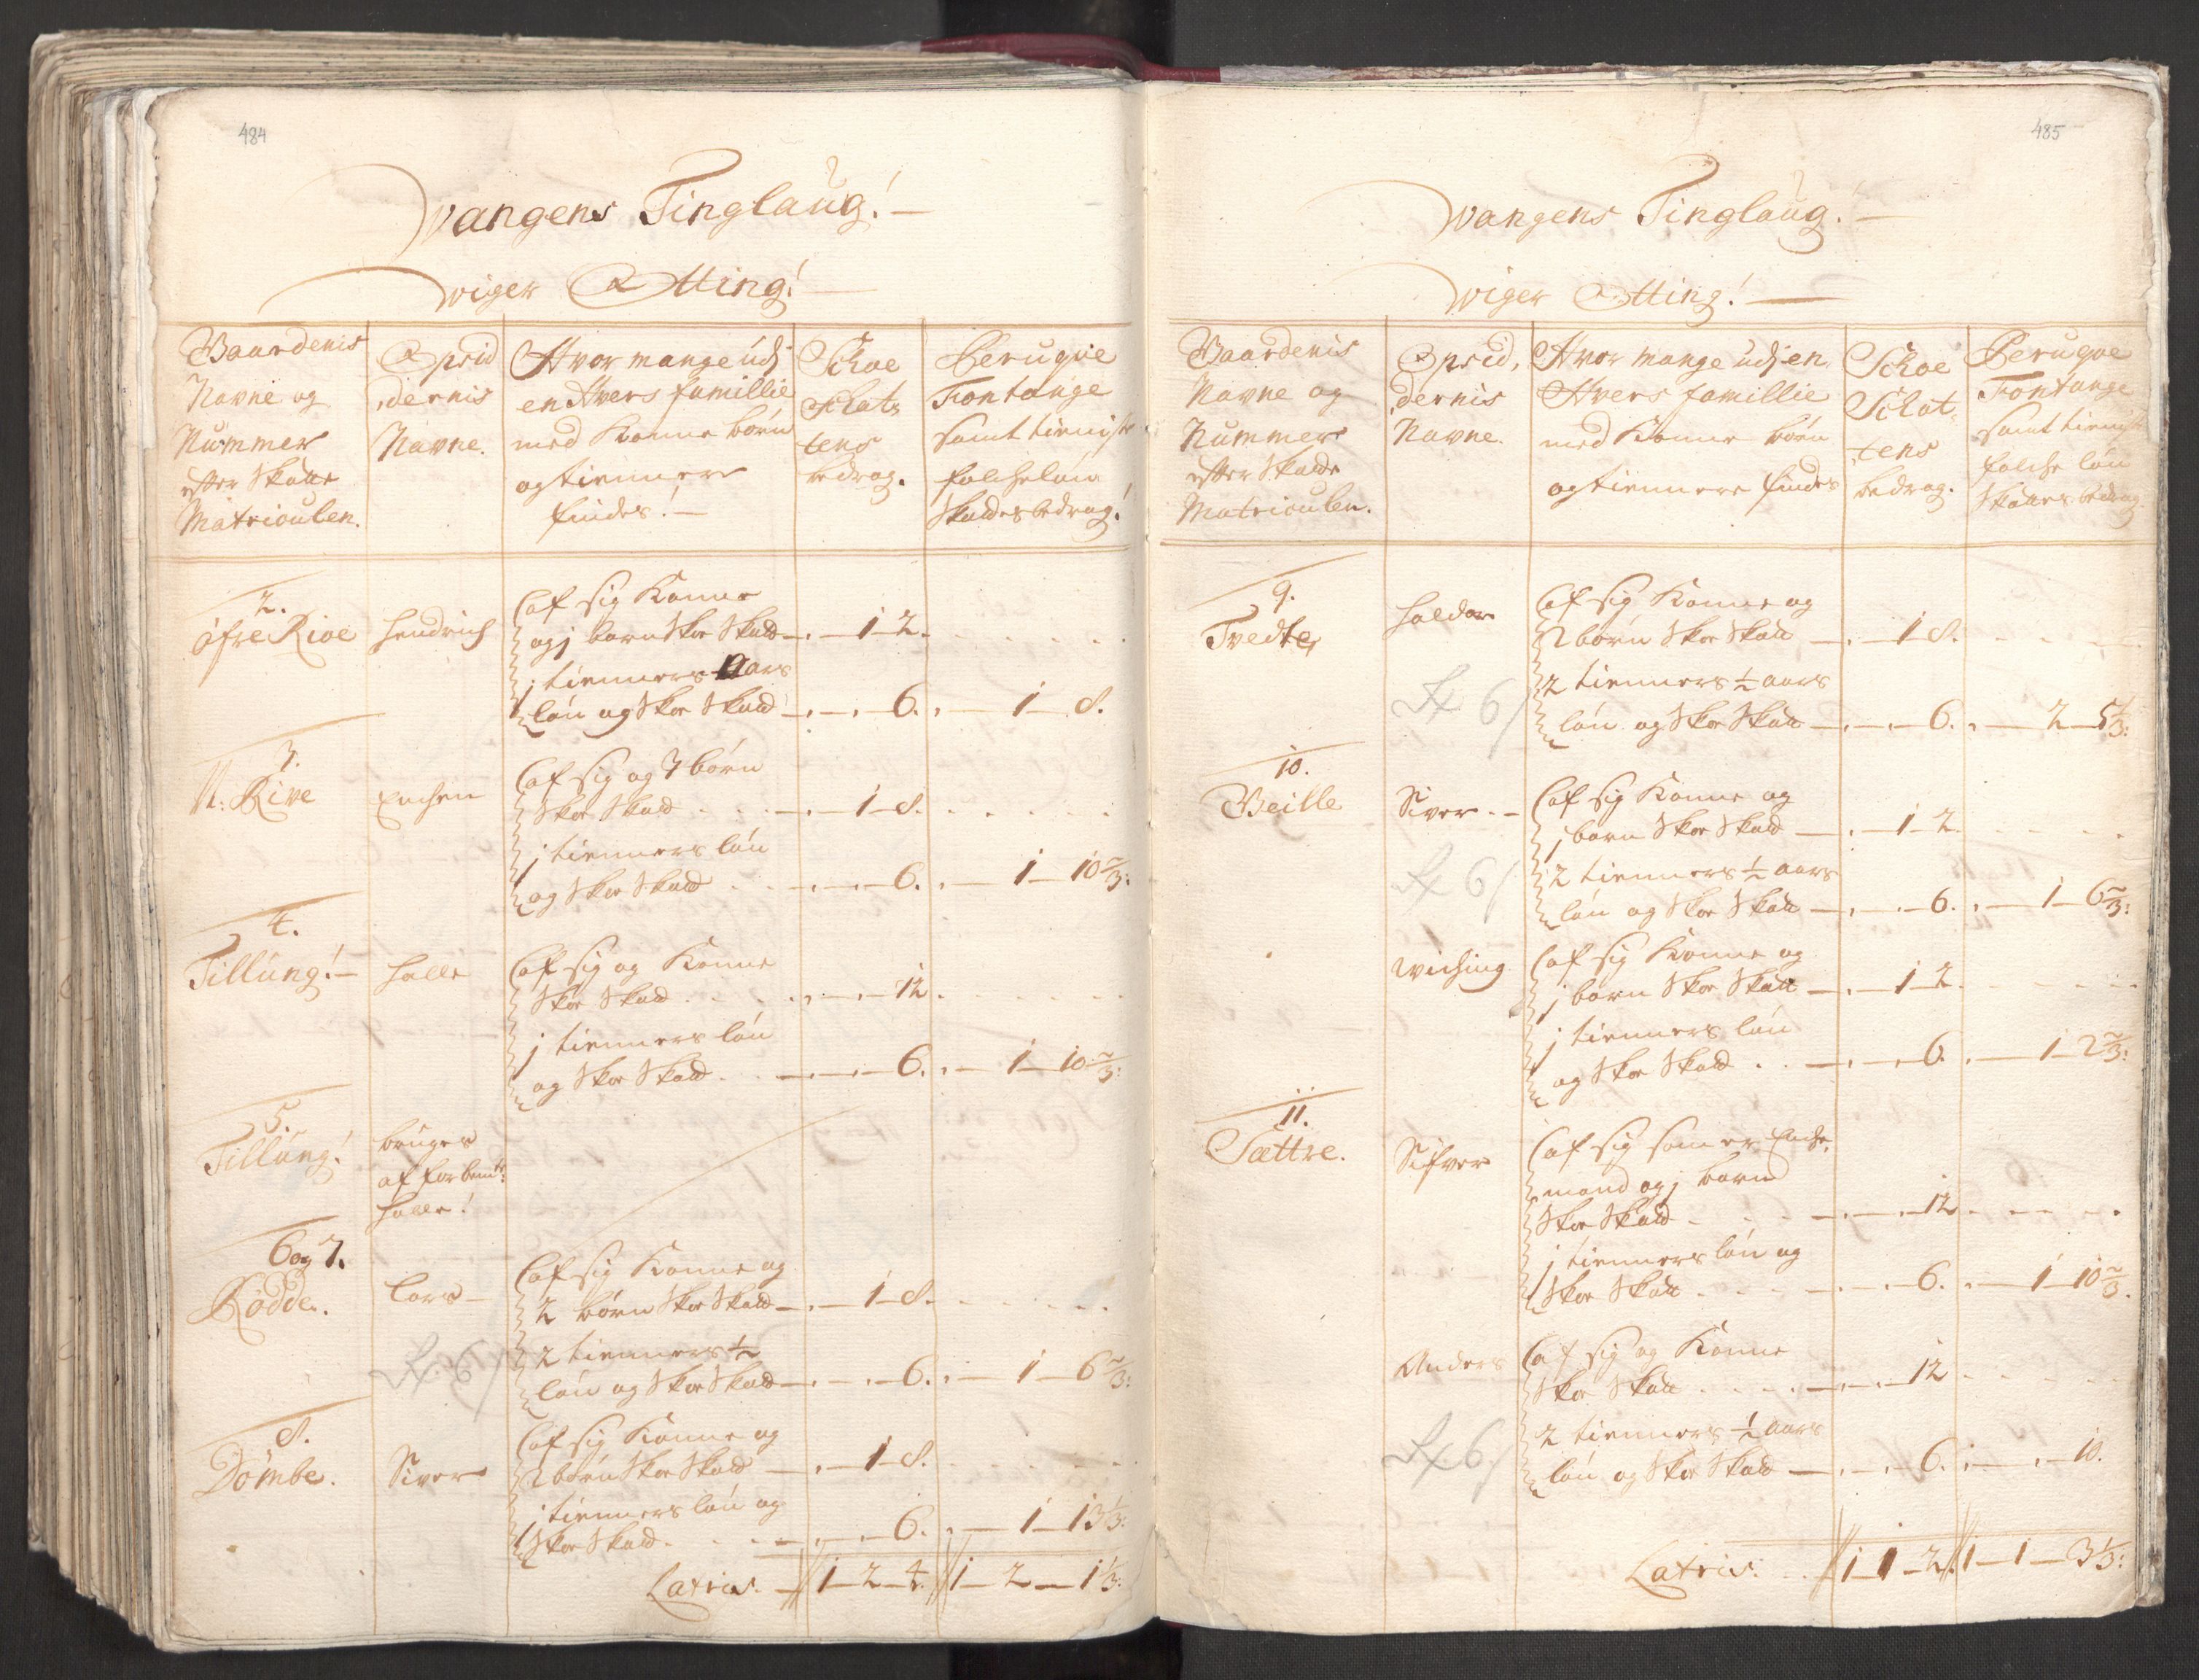 484
Wangens Tinglaug!
Wiger Otting!
Gaardenis
Navne og
Nummer
efter Skatte
Matriculen.
Opsid
dernis
Navne.
Hvor mange udj
en Hvers famillie
med Konne børn
og tienner
findes!
Skoe
Skat=
tens
bedrag.
Peruqve
Fontange
samt tieniste
folcheløn
Skattes bedrag!
2.
øfre Rioe
Hendrich
Af sig Konne
og j barn Skoe Skatt 1 2.
j tienners Aars
løn og Skoe Skatt 6. 1 8.
3.
N: Rive
Enchen
Af sig og 3 børn
Skoe Skatt 1 8.
j tienners løn
og Skoe Skatt 6. 1 10 2/3:
4.
Tillung!
Halle
Af sig og Konne
Skoe Skatt 12.
j tienners løn
og Skoe Skatt 6. 1 10 2/3:
5.
Tillung!
bruges
af forbemte:
Halle!
6 og 7.
Rødde.
Lars
Af sig Konne og
2 børn Skoe Skatt 1 8.
2 tienners 1/2
løn og Skoe Skatt 6. 1 6 2/3:
8.
Dömbe.
Siver
Af sig Konne og
2 børn Skoe Skatt 1 8.
j tienners løn og
Skoe Skatt 6. 1 13 1/3:
Latris. 1 2 4. 1 2 1 1/3:
485
Wangens Tinglaug!
Wiger Otting!
Gaardenis
Navne og
Nummer
efter Skatte
Matriculen.
Opsid,
dernis
Navne.
Hvor mange udj en
Hvers famillie
med Konne børn
og tiennere findes
Skoe
Skat=
tens
bedrag.
Peruqve
Fontange
samt tieniste
folche løn
Skattes bedrag
9.
Tvedte,
Haldor
Af sig Konne og
2 børn Skoe Skatt 1 8.
2 tienners 1/2 aars
løn og Skoe Skatt 6. 2 5 1/3:
10.
Beille
Siver.
Af sig Konne og
j barn Skoe Skatt 1 2.
2 tienners 1/2 aars
løn og Skoe Skatt 6. 1 6 2/3:
Wiching
Af sig Konne og
j barn Skoe Skatt 1 2.
j tienners løn
og Skoe Skatt 6. 1 2 2/3:
11.
Sættre.
Sifver
Af sig som er Enche,
mand og j barn
Skoe Skatt 12
j tienners løn og
Skoe Skatt 6. 1 10 2/3.
Anders
Af sig og Konne
Skoe Skatt 12
2 tienners 1/2 aars
løn og Skoe Skatt 6. 10.
Latris. 1 1 2. 1 1 3 1/3: